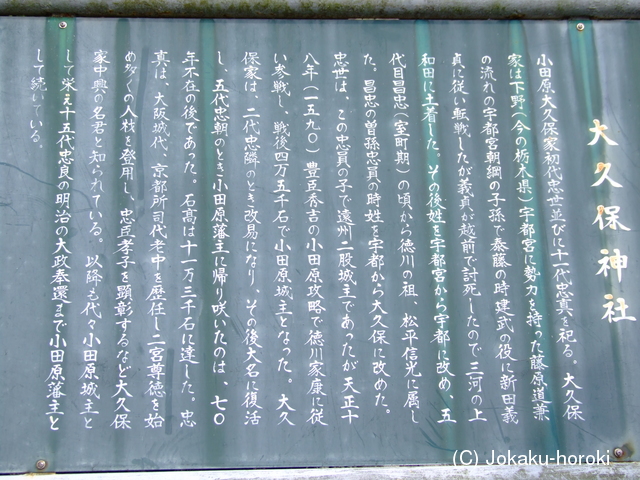 大久保神社
小田原大久保家初代忠世並びに十一代忠真を祀る。大久保
家は下野(今の栃木県)宇都宮に勢力を持った藤原道兼
の流れの宇都宮朝綱の子孫で泰藤の時建武の役に新田義
貞に従い転戦したが義貞が越前で討死したので三河の上
和田に土着した。その後姓を宇都宮から宇都に改め、五
代目昌忠(室町期)の頃から徳川の祖、松平信光に属し
た。昌忠の曽孫忠員の時姓を宇都から大久保に改めた。
忠世は、この忠員の子で遠州二股城主であったが天正十
八年(一五九〇)豊臣秀吉の小田原攻略で徳川家康に従
い参戦し、戦後四万五千石で小田原城主となった。大久
保家は、二代忠隣のとき改易になり、その後大名に復活
し、五代忠朝のとき小田原藩主に帰り咲いたのは、七〇
年不在の後であった。石高は十一万三千石に達した。忠
真は、大阪城代、京都所司代老中を歴任し二宮尊徳を始
め多くの人材を登用し、忠臣孝子を顕彰するなど大久保
家中興の名君と知られている。以降も代々小田原城主と
して栄え十五代忠良の明治の大政奉還まで小田原藩主と
して続いている。
(C) Jokaku-horoki